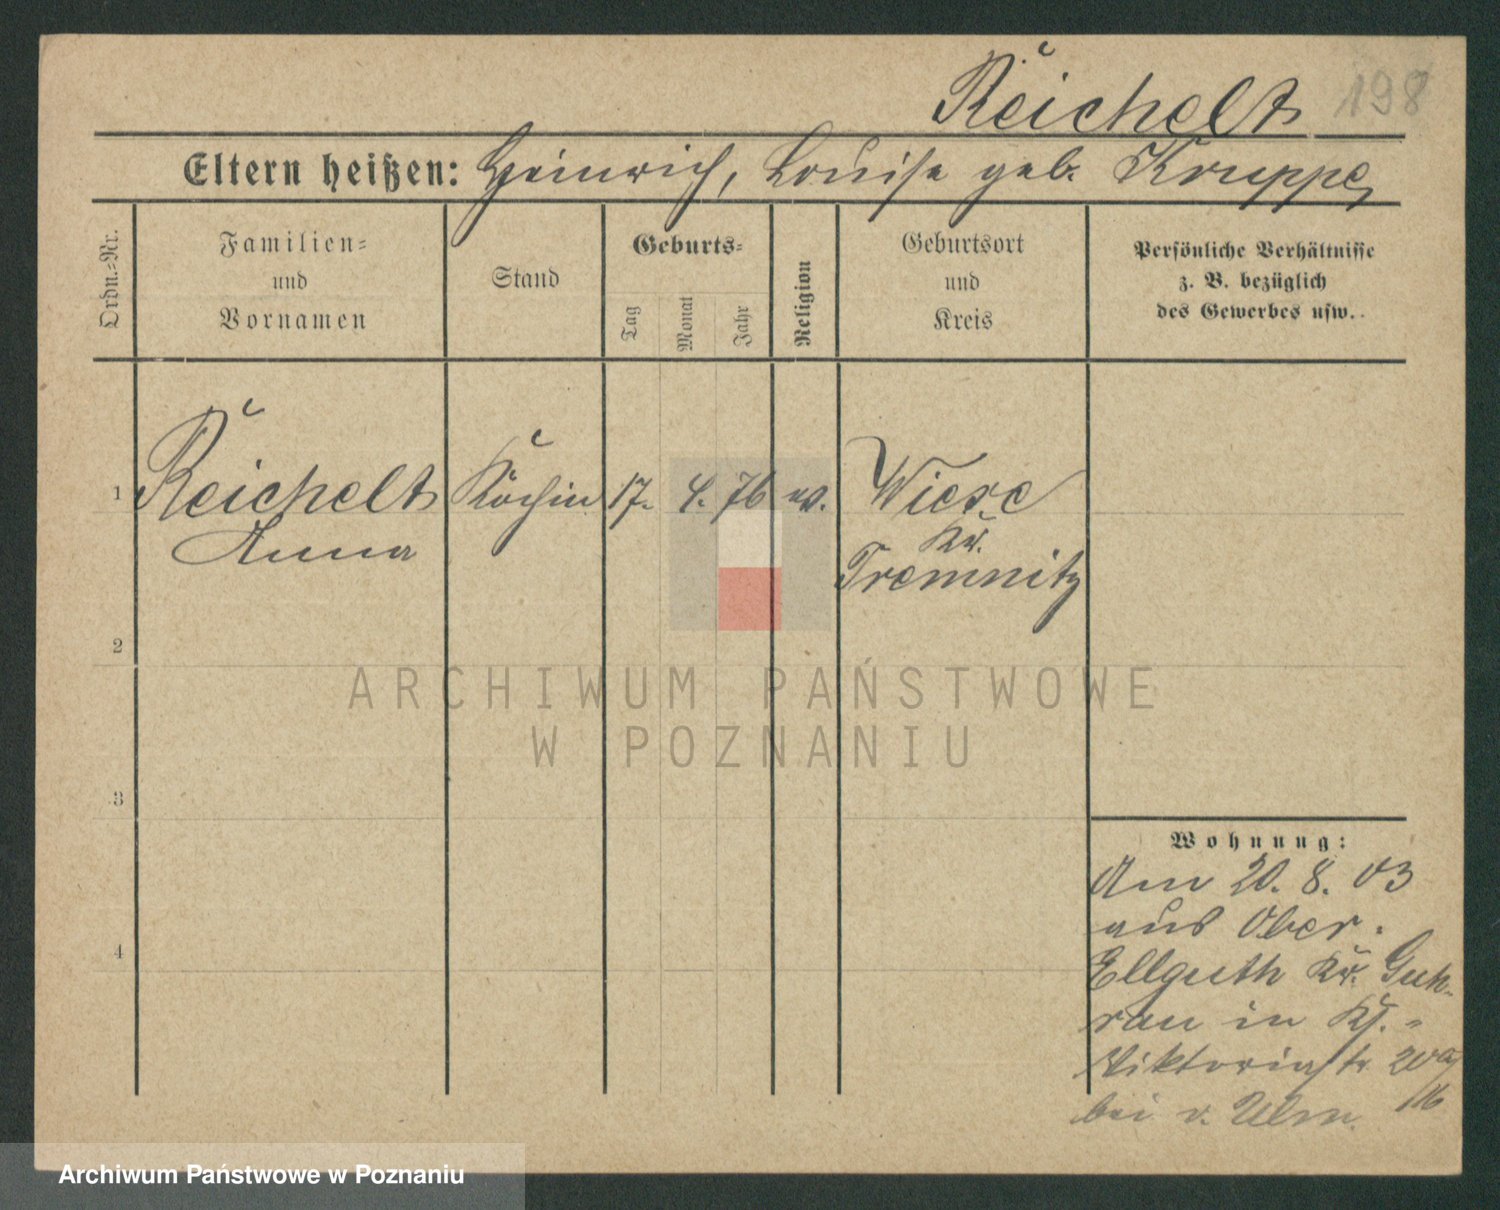 Reichelt 198
Eltern heißen: Heinrich, Louise geb. Kruppe
Ordn.-Nr.
Familien-
und
Vornamen
Stand
Geburts-
Tag
Monat
Jahr
Religion
Geburtsort
und
Kreis
Persönliche Verhältnisse
z. B. bezüglich
des Gewerbes usw.
1 Reichelt Köchin 17. 4. 76 ev. Wiese
Anna Kr.
2
Tremnitz
3
4
Wohnung:
Am 20. 8. 03
aus Ober-
Ellguth Kr. Guh-
rau in
Viktoriastr. 20
bei v. Ulm.
ARCHIWUM PAŃSTWOWE
W POZNANIU
Archiwum Państwowe w Poznaniu